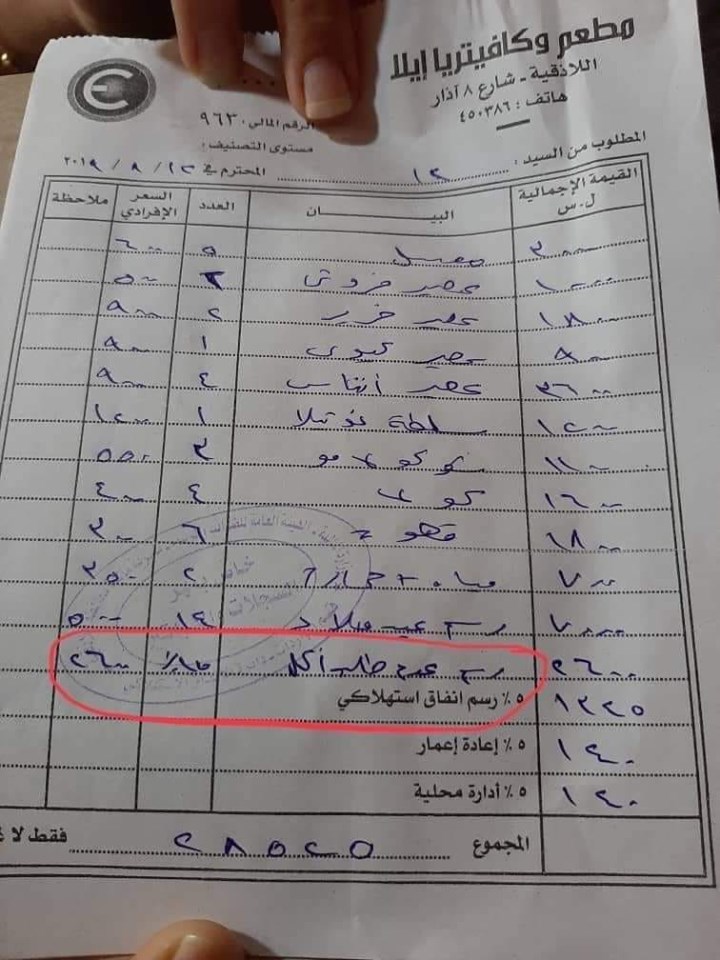 مطعم وكافيتريا إيلا
اللاذقية - شارع ٨ آذار
هاتف : ٤٥٠٣٨٦
الرقم المالي ٩٦٣٠
مستوى التصنيف :
المطلوب من السيد : ١٢ المحترم في ١٣ / ٨ / ٢٠١٩
القيمة الإجمالية ل.س البيـــان العدد السعر الإفرادي ملاحظة
٣٠٠٠ معسل ٥ ٦٠٠
١٠٠٠ عصير ٢ ٥٠٠
١٨٠٠ عصير ٢ ٩٠٠
٩٠٠ عصير كيوي ١ ٩٠٠
٣٦٠٠ عصير أناناس ٤ ٩٠٠
١٢٠٠ سلطة نوتيلا ١ ١٢٠٠
١١٠٠ ٢ ٥٥٠
١٦٠٠ كولا ٤ ٤٠٠
١٨٠٠ قهوة ٦ ٣٠٠
٧٠٠ مياه + ٢ ٣٥٠
٧٠٠٠ رسم عيد ميلاد ١٤ ٥٠٠
٢٦٠٠ رسم عدم طلب أكل ٢٦٠٠
٥٪ رسم انفاق استهلاكي
٥٪ إعادة إعمار ١٤٠
٥٪ أدارة محلية ١٤٠
المجموع ٢٨٥٢٥ فقط لا